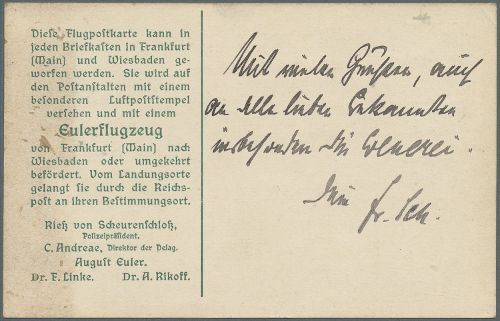 Diese Flugpostkarte kann in
jeden Briefkasten in Frankfurt
(Main) und Wiesbaden ge-
worfen werden. Sie wird auf
den Postanstalten mit einem
besonderen Luftpoststempel
versehen und mit einem
Eulerflugzeug
von Frankfurt (Main) nach
Wiesbaden oder umgekehrt
befördert. Vom Landungsorte
gelangt sie durch die Reichs-
post an ihren Bestimmungsort.
Rieß von Scheurenschloß,
Polizeipräsident.
C. Andreae, Direktor der Delag.
August Euler.
Dr. F. Linke. Dr. A. Rikoff.
Mit vielen Grüßen, auch
an alle lieben Bekannten
insbesondere die
Fr. Sch.